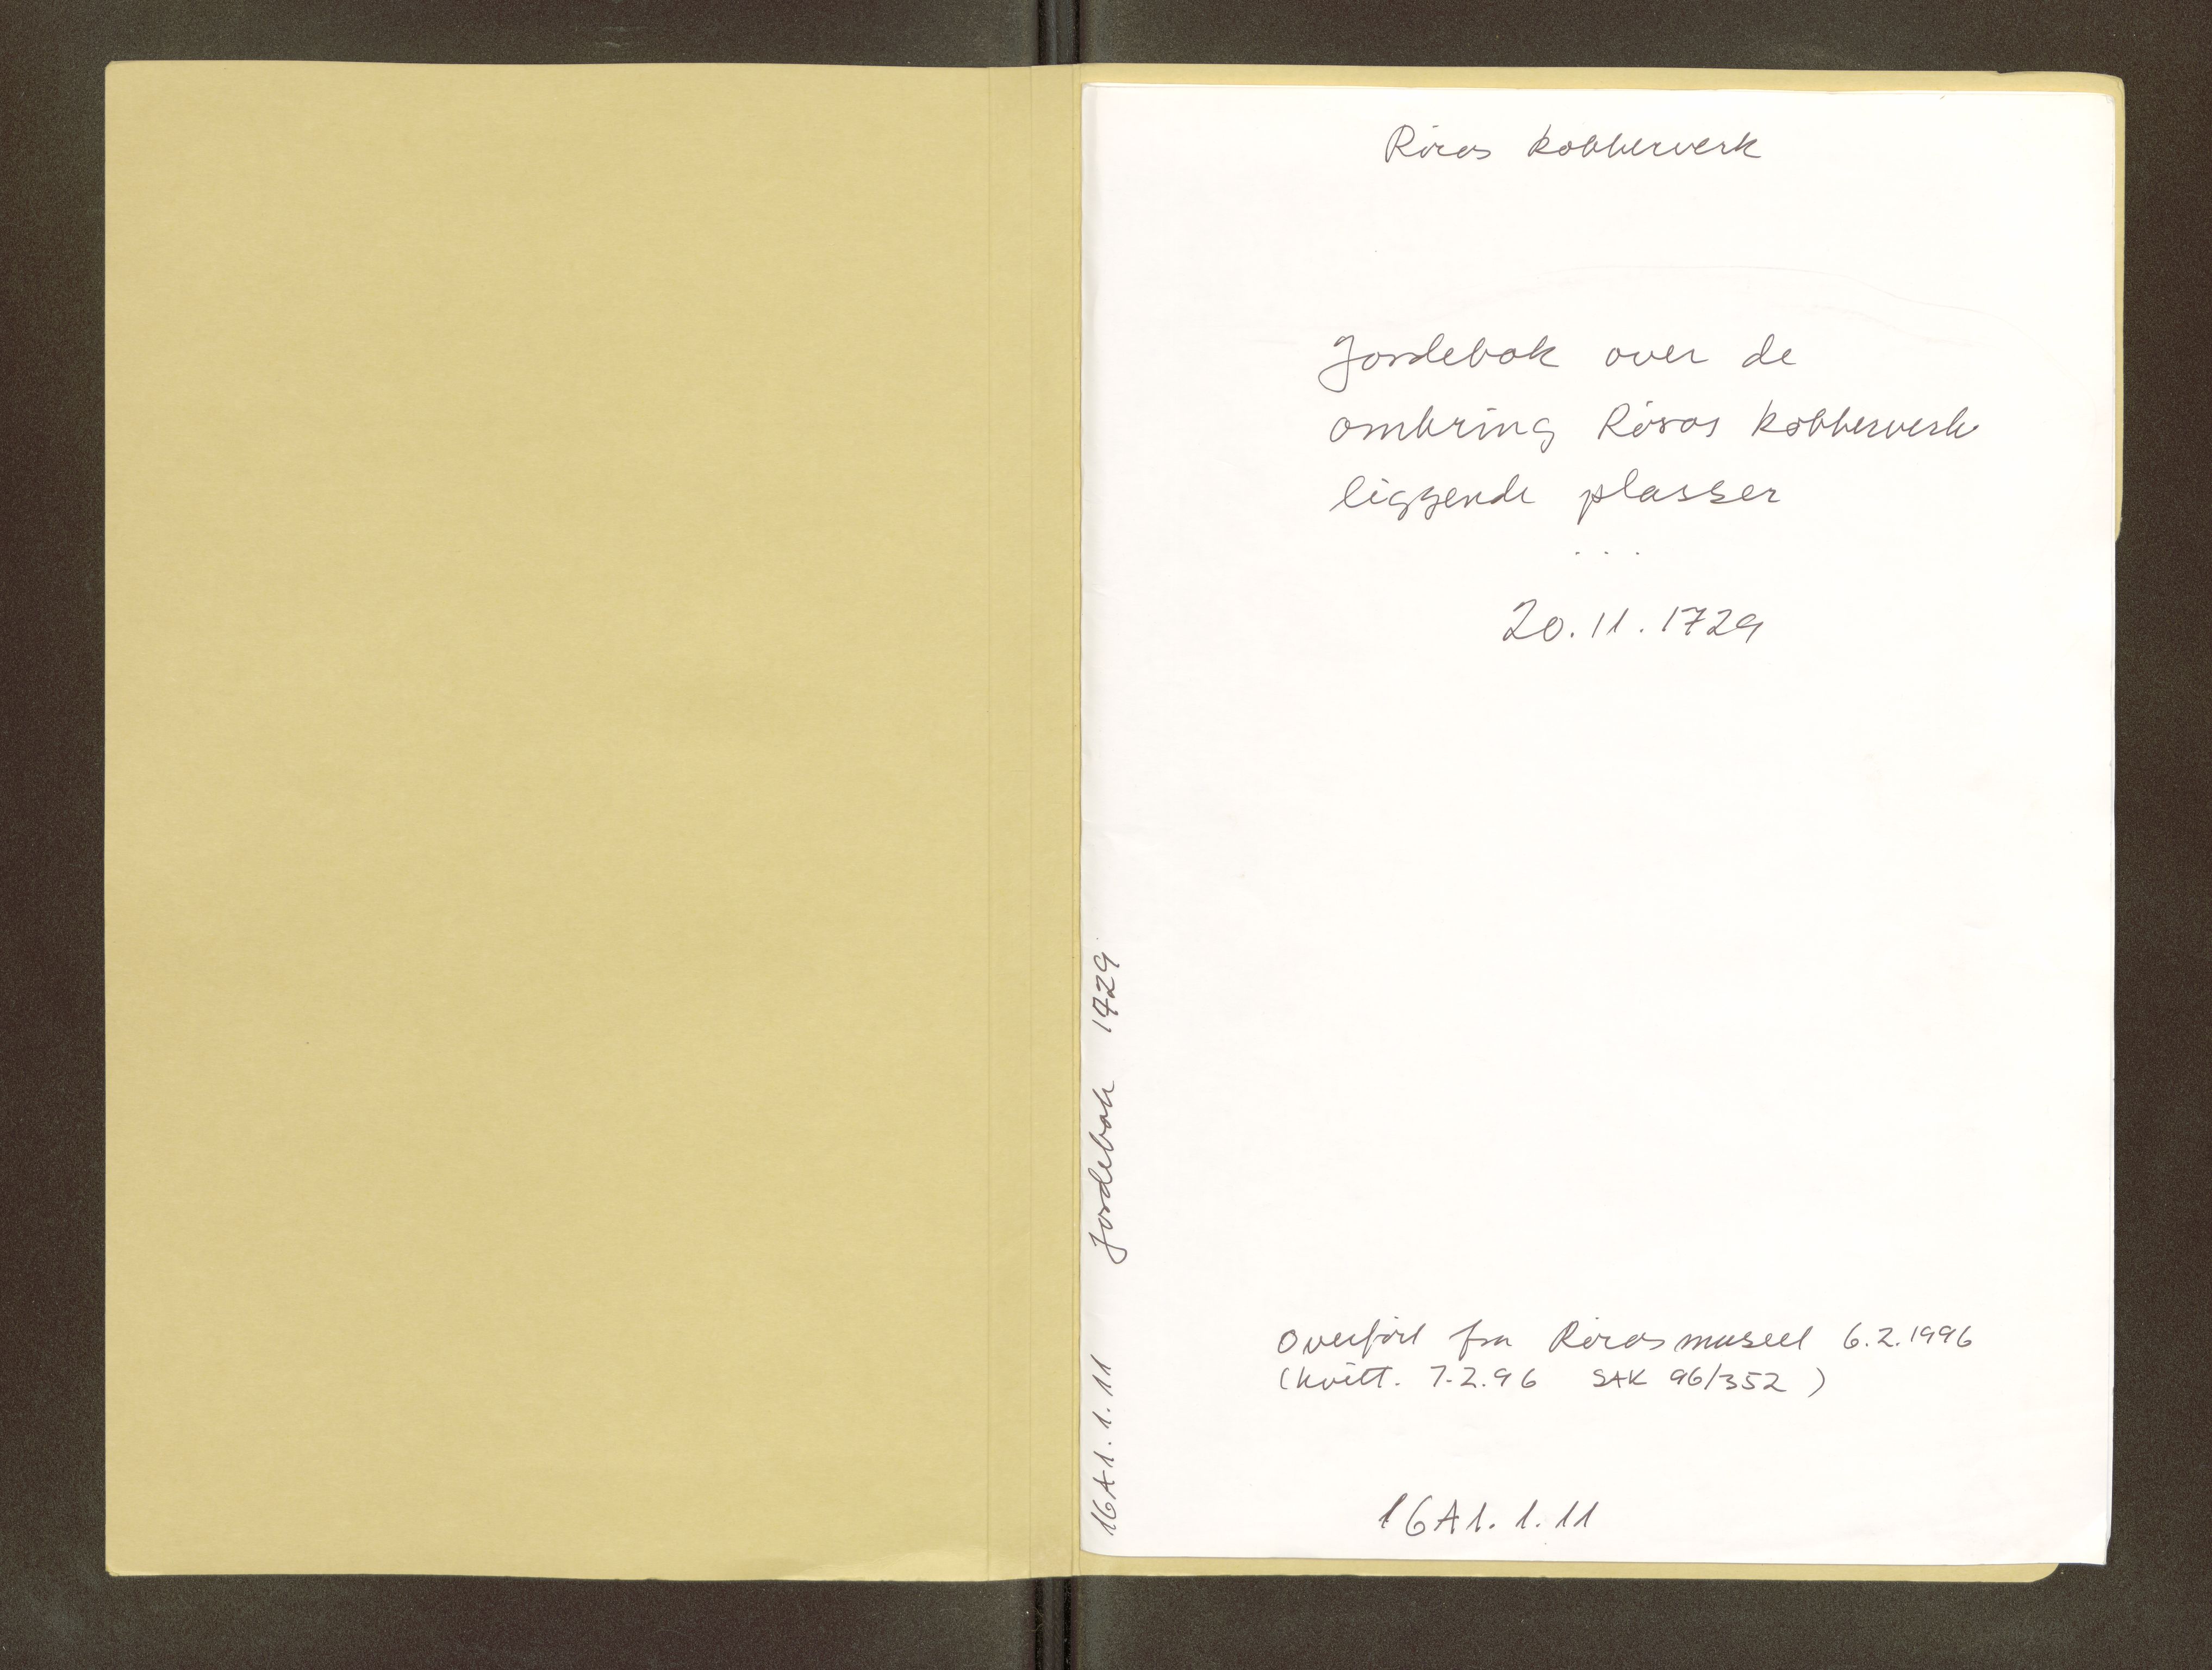 Røros kobberverk
Jordebok over de
omkring Røros kobberverk
liggende plasser
. . .
20.11.1729
Overført fra Rørosmuseet 6.2.1996
(kvitt. 7.2.96 SAK 96/352)
16A1.1.11
16A1.1.11 Jordebok 1729